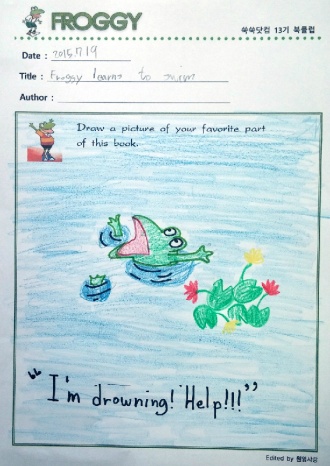 FROGGY
쑥쑥닷컴 13기 북클럽
Date : 2015.7.19
Title : Froggy learns to swim
Author :
Draw a picture of your favorite part
of this book.
"I'm drowning! Help!!!"
Edited by 원영사랑